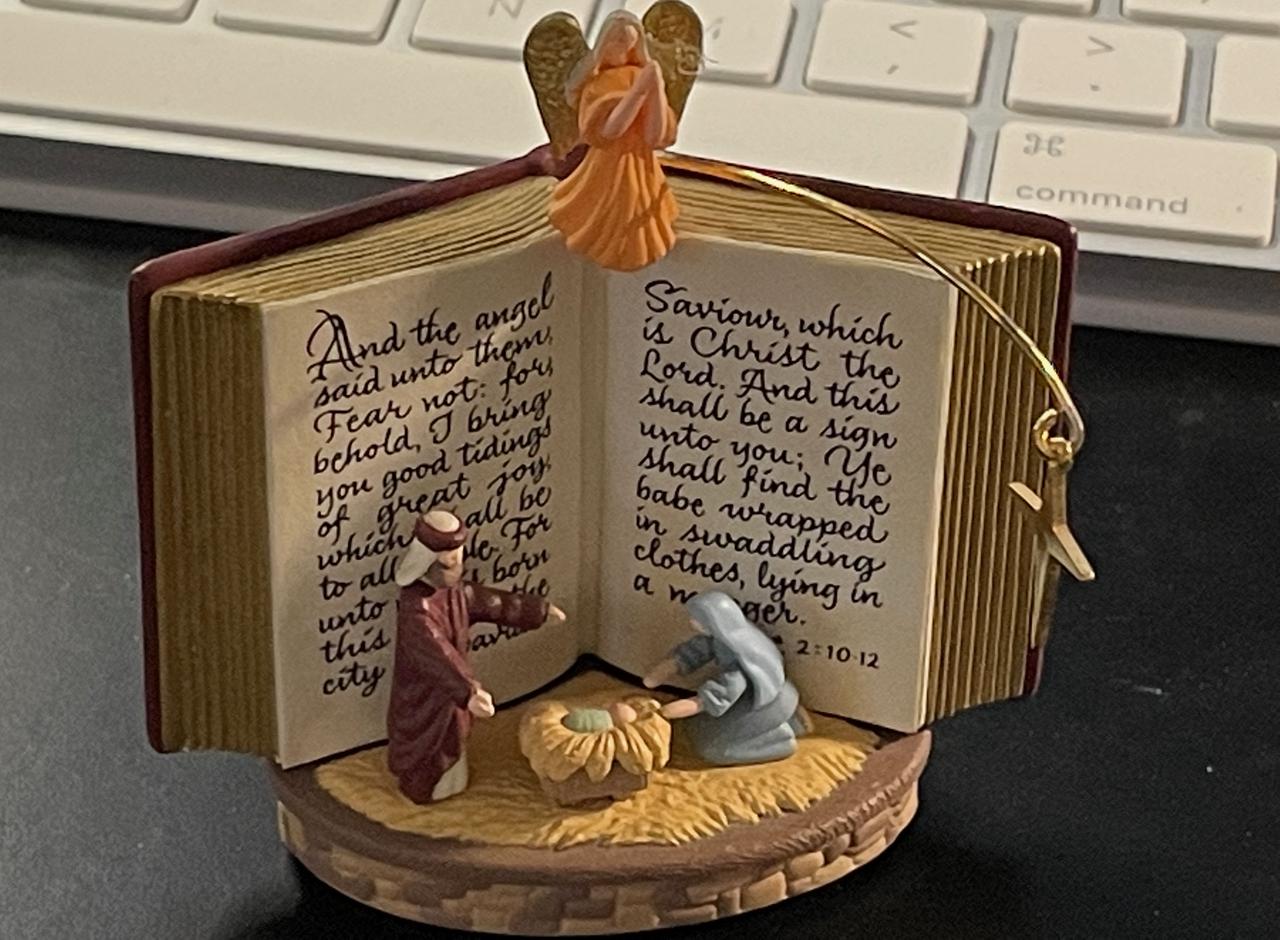 Z
<
,
>
.
⌘
command
And the angel
said unto them,
Fear not: for,
behold, I bring
you good tidings
of great joy,
which all be
to all ple. For
unto s born
this the
city
Saviour, which
is Christ the
Lord. And this
shall be a sign
unto you; Ye
shall find the
babe wrapped
in swaddling
clothes, lying in
a ger.
2:10-12